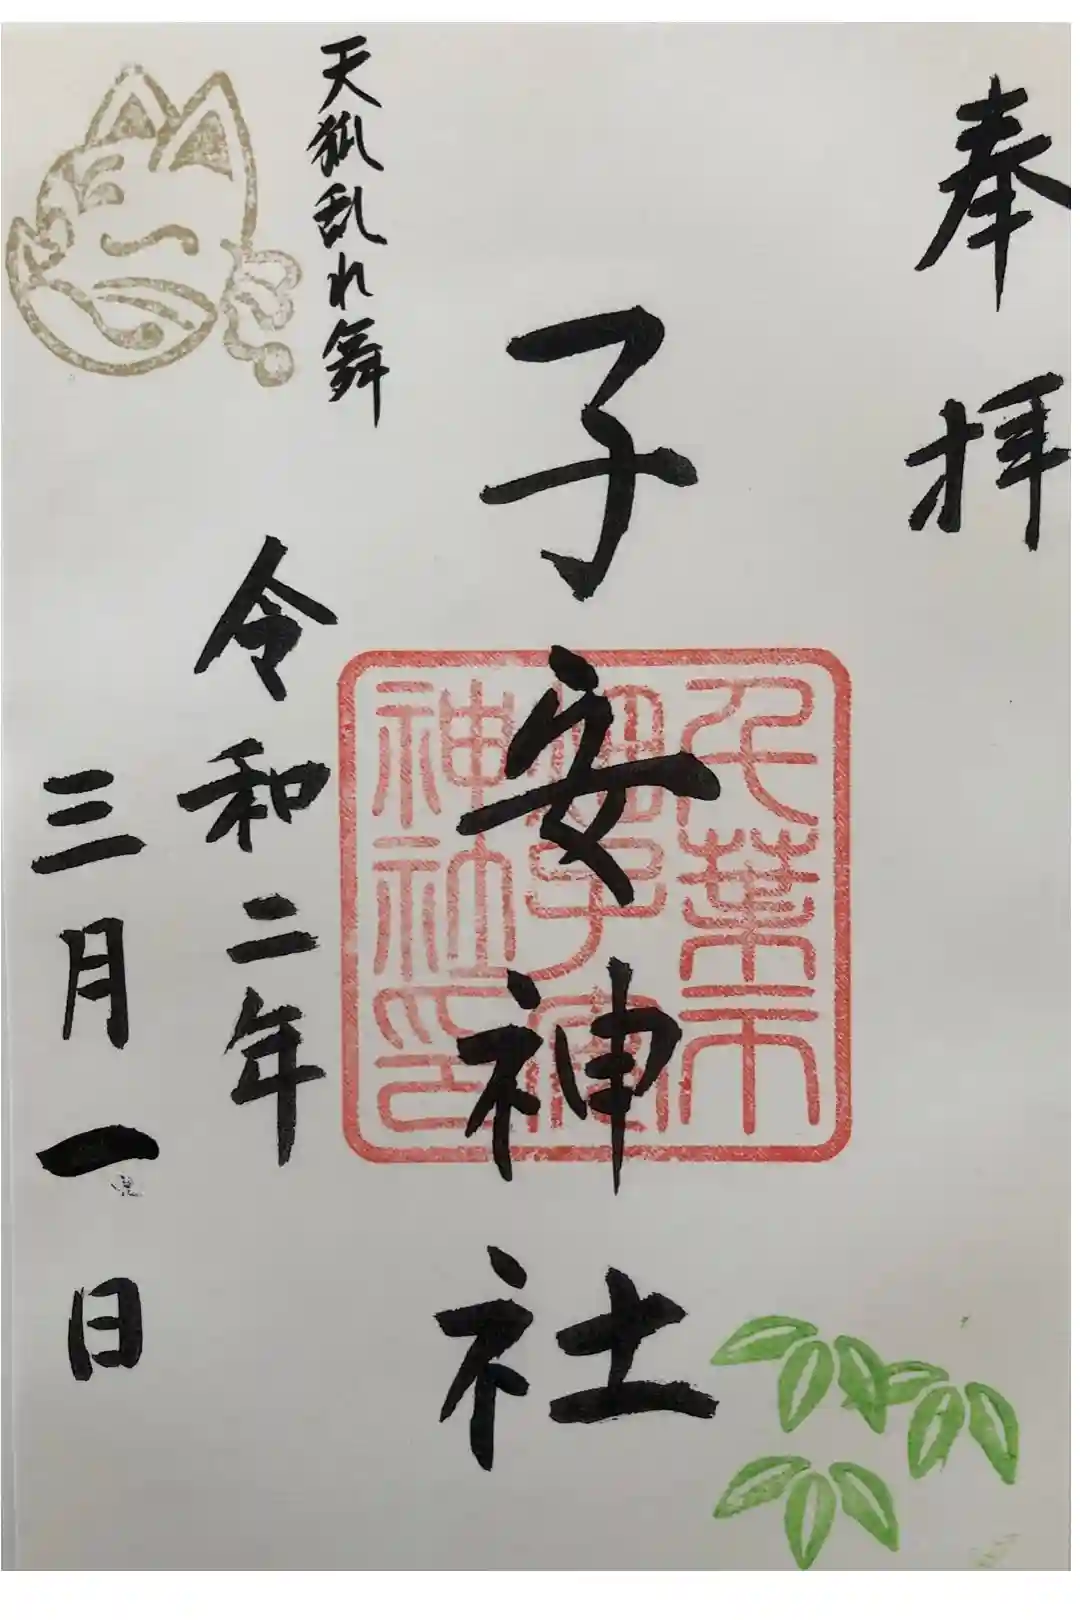 奉拝
子安神社
千葉市
畑子安
神社印
天狐乱れ舞
令和二年
三月一日